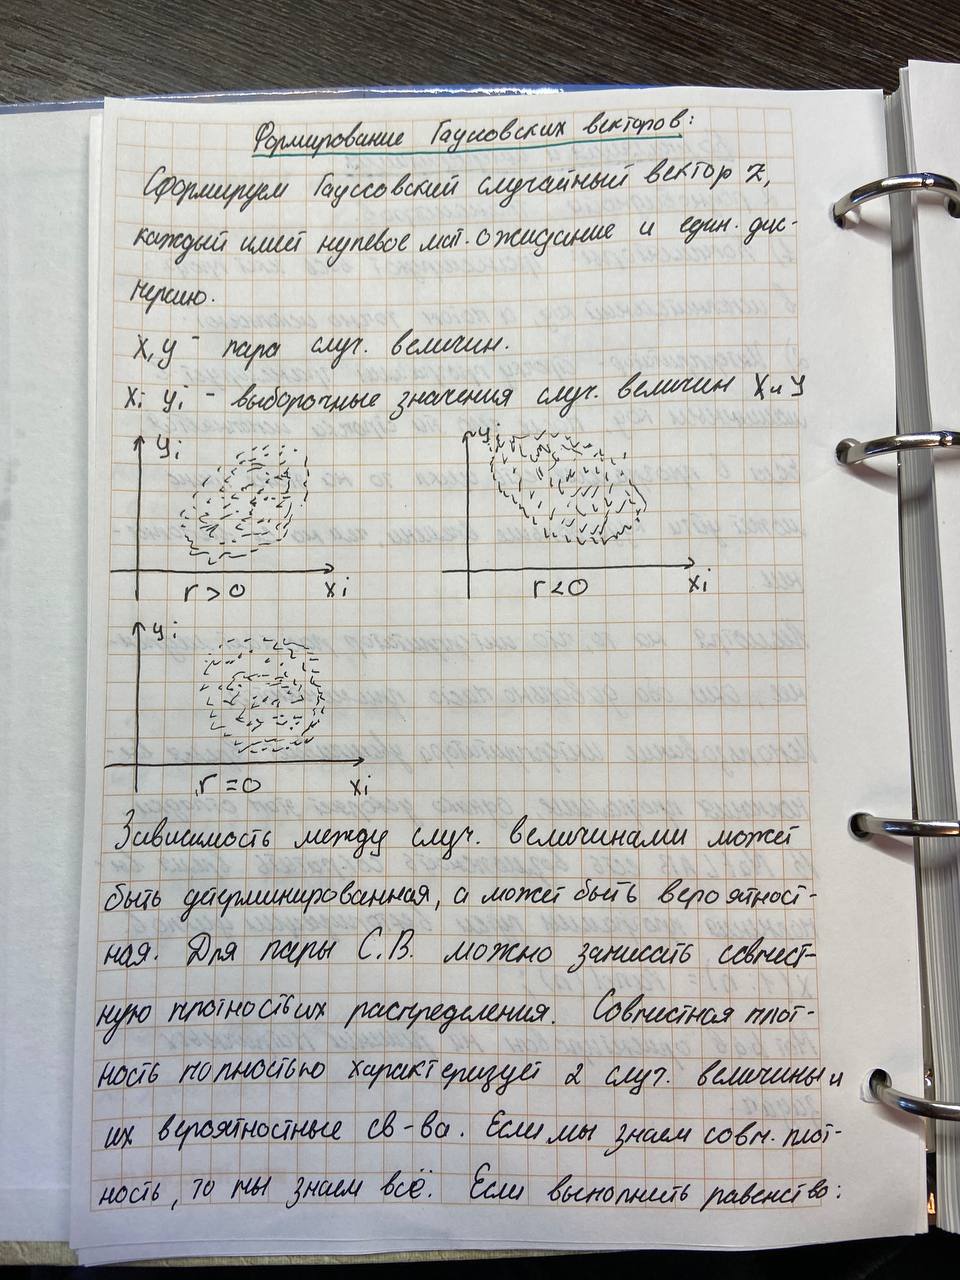 Формирование Гауссовских векторов:
Сформируем Гауссовский случайный вектор Z,
каждый имеет нулевое мат. ожидание и един. дис-
персию.
X, y - пара случ. величин.
Xi yi - выборочные значения случ. величин X и Y
yi
r > 0
xi
yi
r < 0
xi
yi
r = 0
xi
Зависимость между случ. величинами может
быть детерминированная, а может быть вероятност-
ная. Для пары С.В. можно записать совмест-
ную плотность их распределения. Совместная плот-
ность полностью характеризует 2 случ. величины и
их вероятностные св-ва. Если мы знаем совм. плот-
ность, то мы знаем всё. Если выполнить равенство: